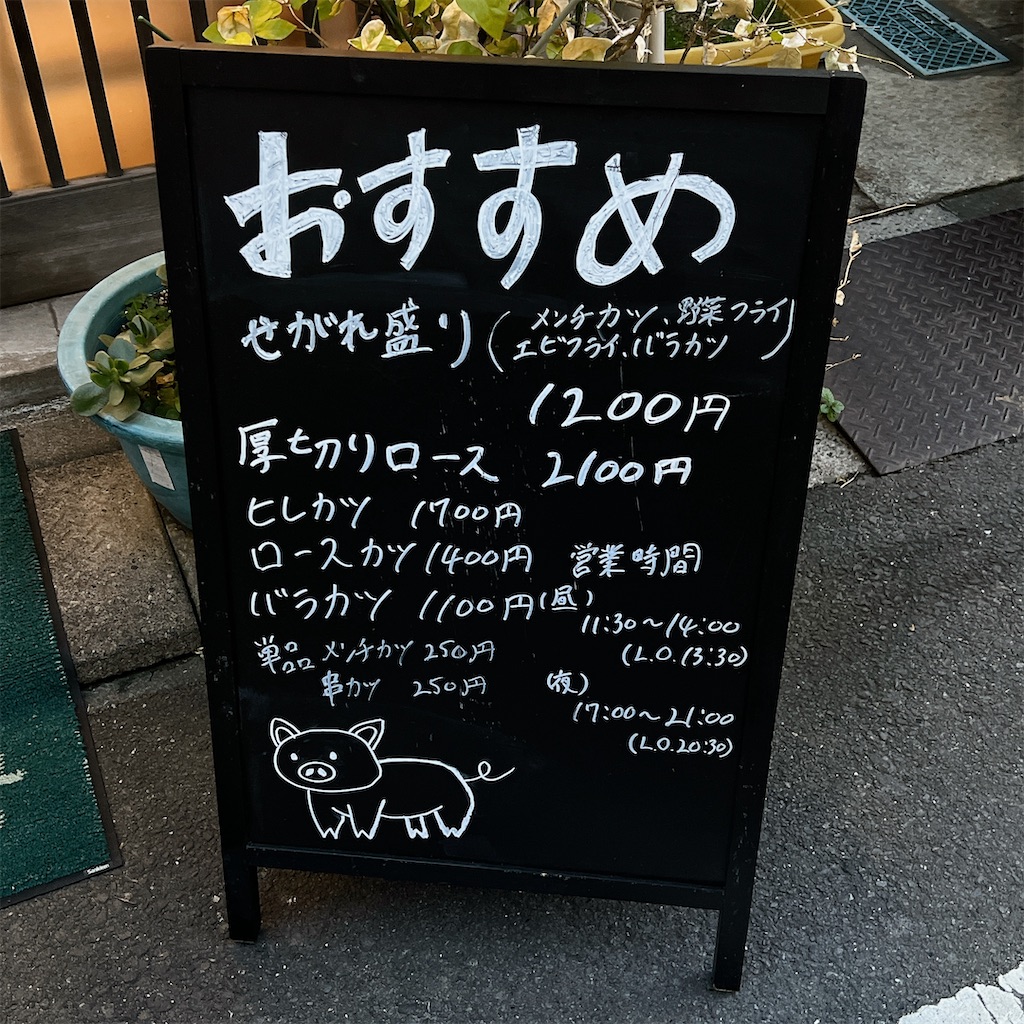 おすすめ
せがれ盛り(メンチカツ、野菜フライ
エビフライ、バラカツ)
1200円
厚切りロース 2100円
ヒレカツ 1700円
ロースカツ 1400円
バラカツ 1100円
単品 メンチカツ 250円
串カツ 250円
営業時間
(昼)
11:30〜14:00
(L.O.13:30)
(夜)
17:00〜21:00
(L.O.20:30)